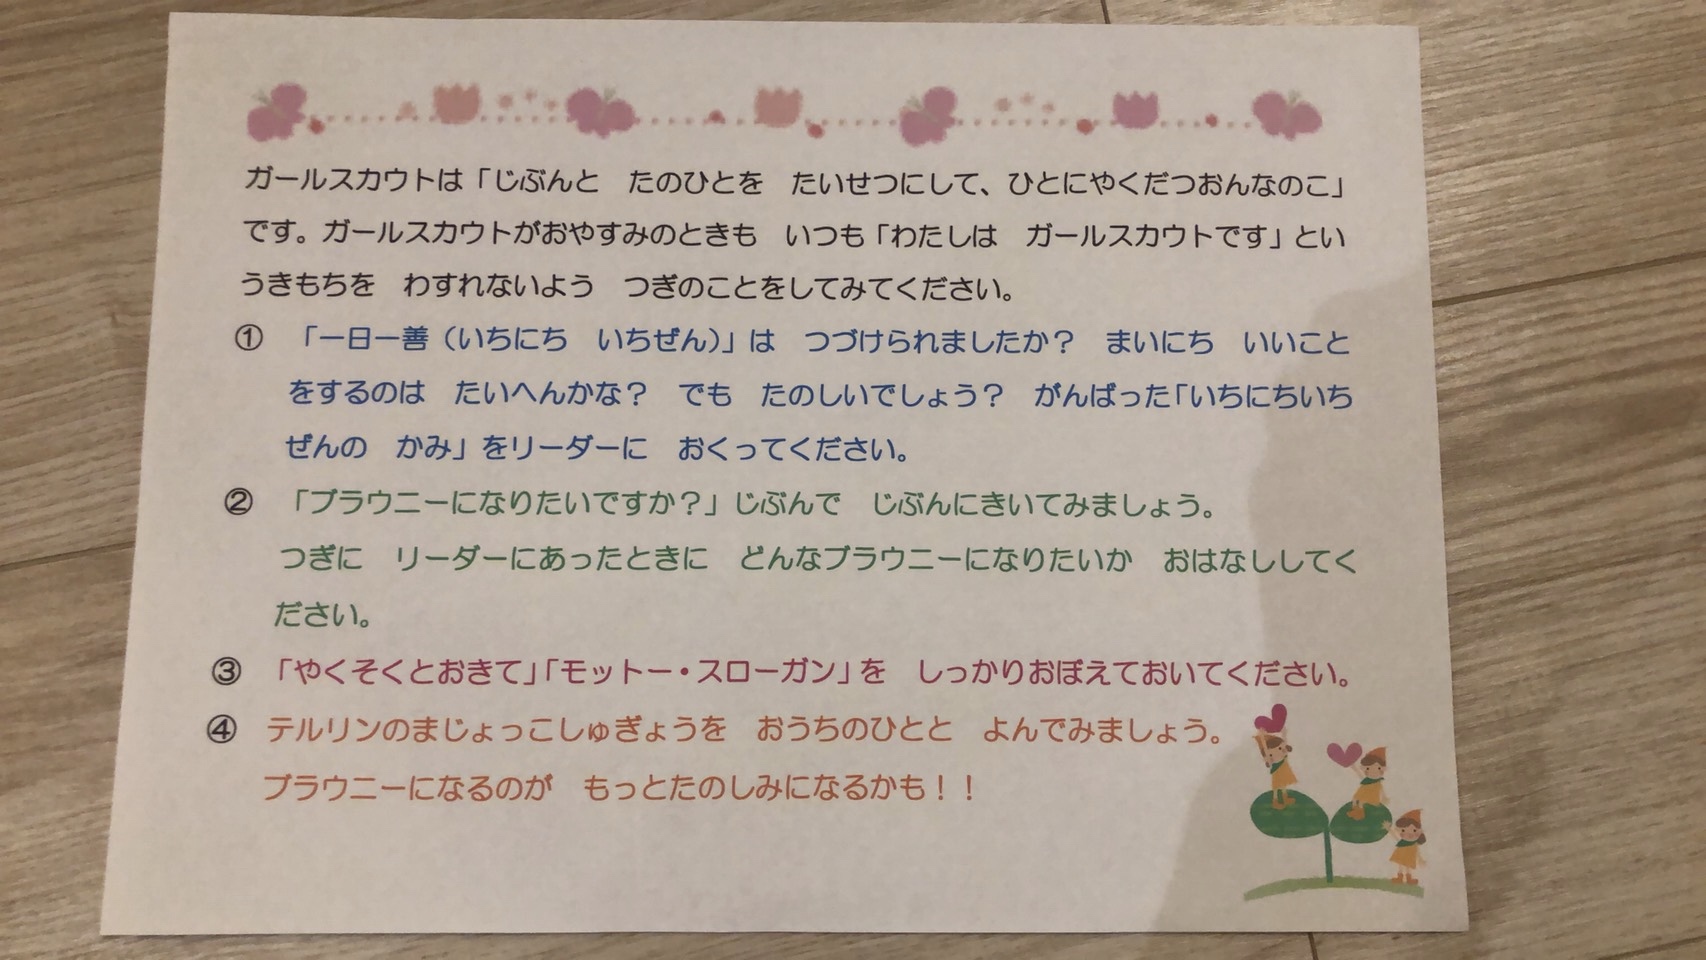 ガールスカウトは「じぶんと　たのひとを　たいせつにして、ひとにやくだつおんなのこ」
です。ガールスカウトがおやすみのときも　いつも「わたしは　ガールスカウトです」とい
うきもちを　わすれないよう　つぎのことをしてみてください。
①　「一日一善（いちにち　いちぜん）」は　つづけられましたか？　まいにち　いいこと
をするのは　たいへんかな？　でも　たのしいでしょう？　がんばった「いちにちいち
ぜんの　かみ」をリーダーに　おくってください。
②　「ブラウニーになりたいですか？」じぶんで　じぶんにきいてみましょう。
つぎに　リーダーにあったときに　どんなブラウニーになりたいか　おはなししてく
ださい。
③　「やくそくとおきて」「モットー・スローガン」を　しっかりおぼえておいてください。
④　テルリンのまじょっこしゅぎょうを　おうちのひとと　よんでみましょう。
ブラウニーになるのが　もっとたのしみになるかも！！